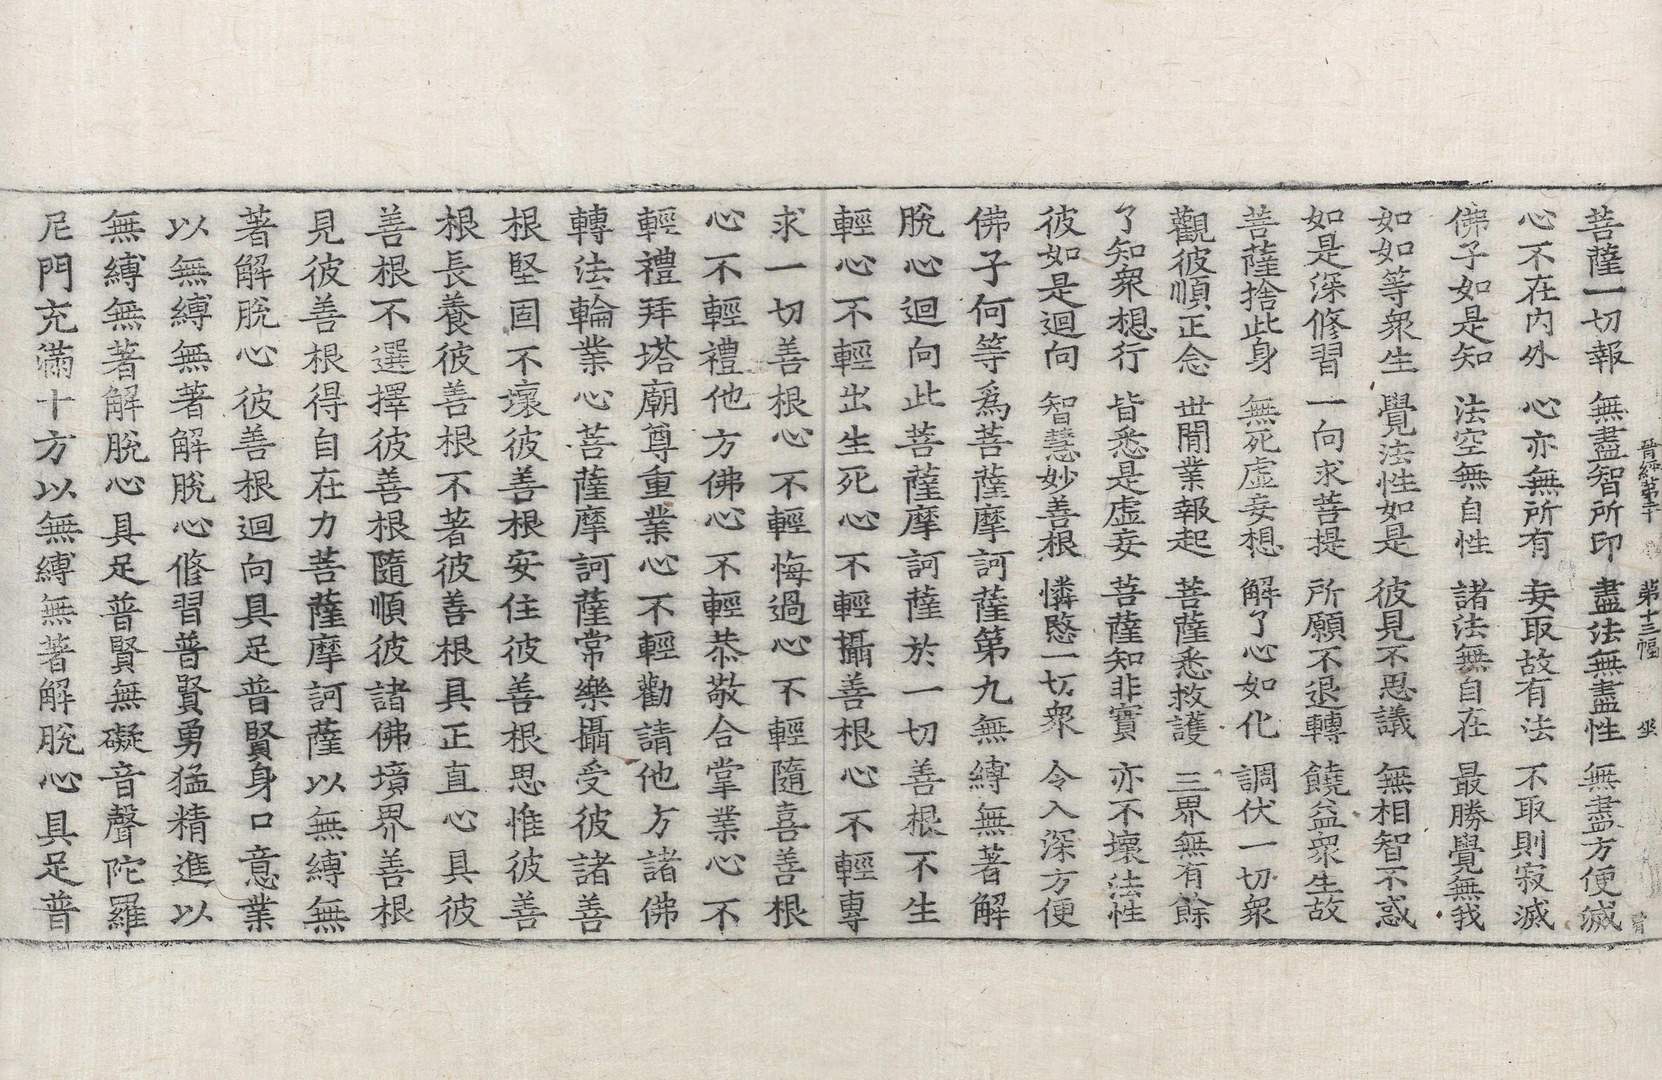 晉經第二十 第十三幅 坐
菩薩一切報 無盡智所印 盡法無盡性 無盡方便滅
心不在內外 心亦無所有 妄取故有法 不取則寂滅
佛子如是知 法空無自性 諸法無自在 最勝覺無我
如如等衆生 覺法性如是 彼見不思議 無相智不惑
如是深修習 一向求菩提 所願不退轉 饒益衆生故
菩薩捨此身 無死虛妄想 解了心如化 調伏一切衆
觀彼順正念 世閒業報起 菩薩悉救護 三界無有餘
了知衆想行 皆悉是虛妄 菩薩知非實 亦不壞法性
彼如是迴向 智慧妙善根 憐愍一切衆 令入深方便
佛子何等爲菩薩摩訶薩第九無縛無著解
脫心迴向此菩薩摩訶薩於一切善根不生
輕心不輕出生死心不輕攝善根心不輕專
求一切善根心不輕悔過心不輕隨喜善根
心不輕禮他方佛心不輕恭敬合掌業心不
輕禮拜塔廟尊重業心不輕勸請他方諸佛
轉法輪業心菩薩摩訶薩常樂攝受彼諸善
根堅固不壞彼善根安住彼善根思惟彼善
根長養彼善根不著彼善根具正直心具彼
善根不選擇彼善根隨順彼諸佛境界善根
見彼善根得自在力菩薩摩訶薩以無縛無
著解脫心彼善根迴向具足普賢身口意業
以無縛無著解脫心修習普賢勇猛精進以
無縛無著解脫心具足普賢無礙音聲陀羅
尼門充滿十方以無縛無著解脫心具足普